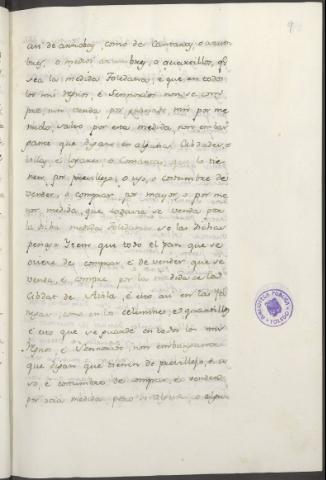 asi de arrobas, como de Cantaras, o azum
bres, o medias azumbres, o quartillos, qe
sea la medida Toledana, e que en todos
los mis Regnos, e Sennorios non se com
pre nin venda por granado, nin por me
nudo, salvo por esta medida, non embar
gante que digan en algunas Cibdades, e
villas, e logares, o Comarcas, que lo tie
nen por previllejo, o uso, o costumbre de
vender, o comprar por mayor, o por me
nor medida, que todavia se venda por
la dicha medida Toledana, so las dichas
penas. Item que todo el pan que se
oviere de comprar, e de vender, que se
venda, e compre por la medida de la
Cibdat de Avila, e esto asi en las fa
negas, como en los celemines, e quartillos,
e esto que se guarde en todos los mis
Regnos, e Sennorios, non embargante
que digan que tienen de previllejo, e u
so, e costumbre de comprar, e vender
por otra medida, pero si alguno, o algu
BIBLIOTECA PUBLICA
TOLEDO